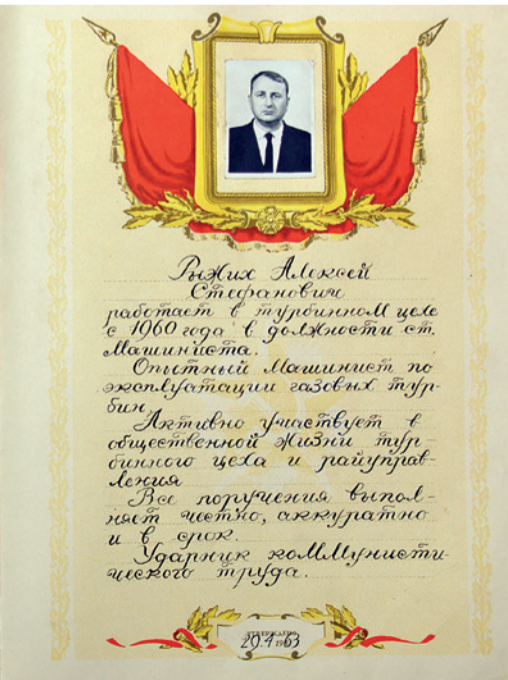 Рыжих Алексей
Стефанович
работает в турбинном цехе
с 1960 года в должности ст.
Машиниста.
Опытный Машинист по
эксплуатации газовых тур-
бин.
Активно участвует в
общественной жизни тур-
бинного цеха и райуправ-
ления
Все поручения выпол-
няет честно, аккуратно
и в срок.
Ударник коммунисти-
ческого труда.
29.4 63